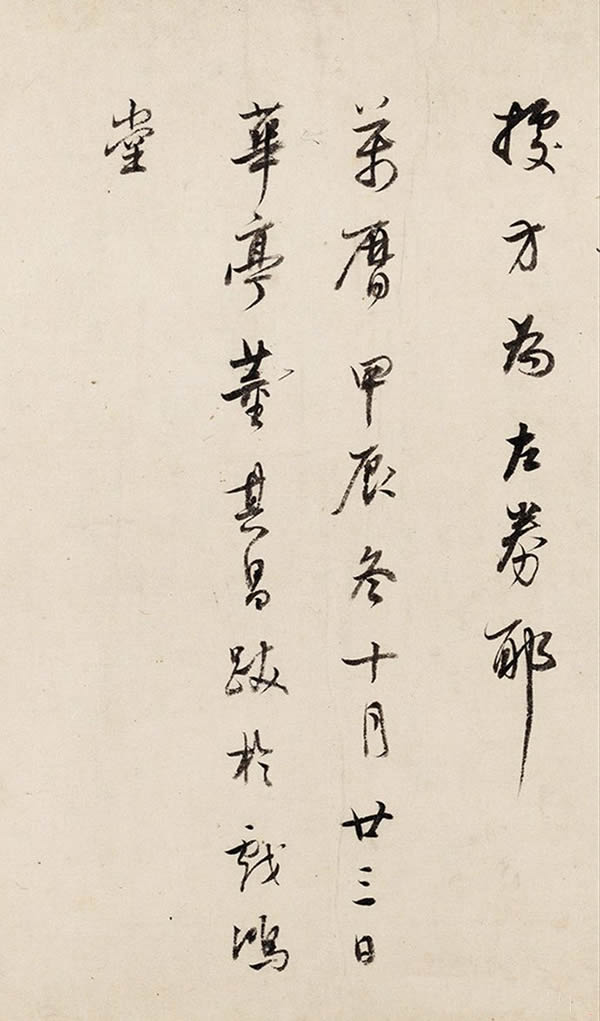 據方為左券耶
萬曆甲辰冬十月廿三日
華亭董其昌跋於戲鴻
堂